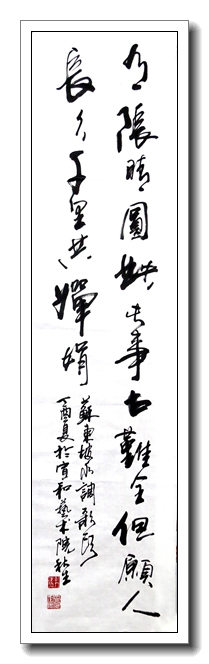 陰晴圓缺此事古難全但願人
長久千里共嬋娟
蘇東坡水調歌頭
丁酉夏於宣和藝術院